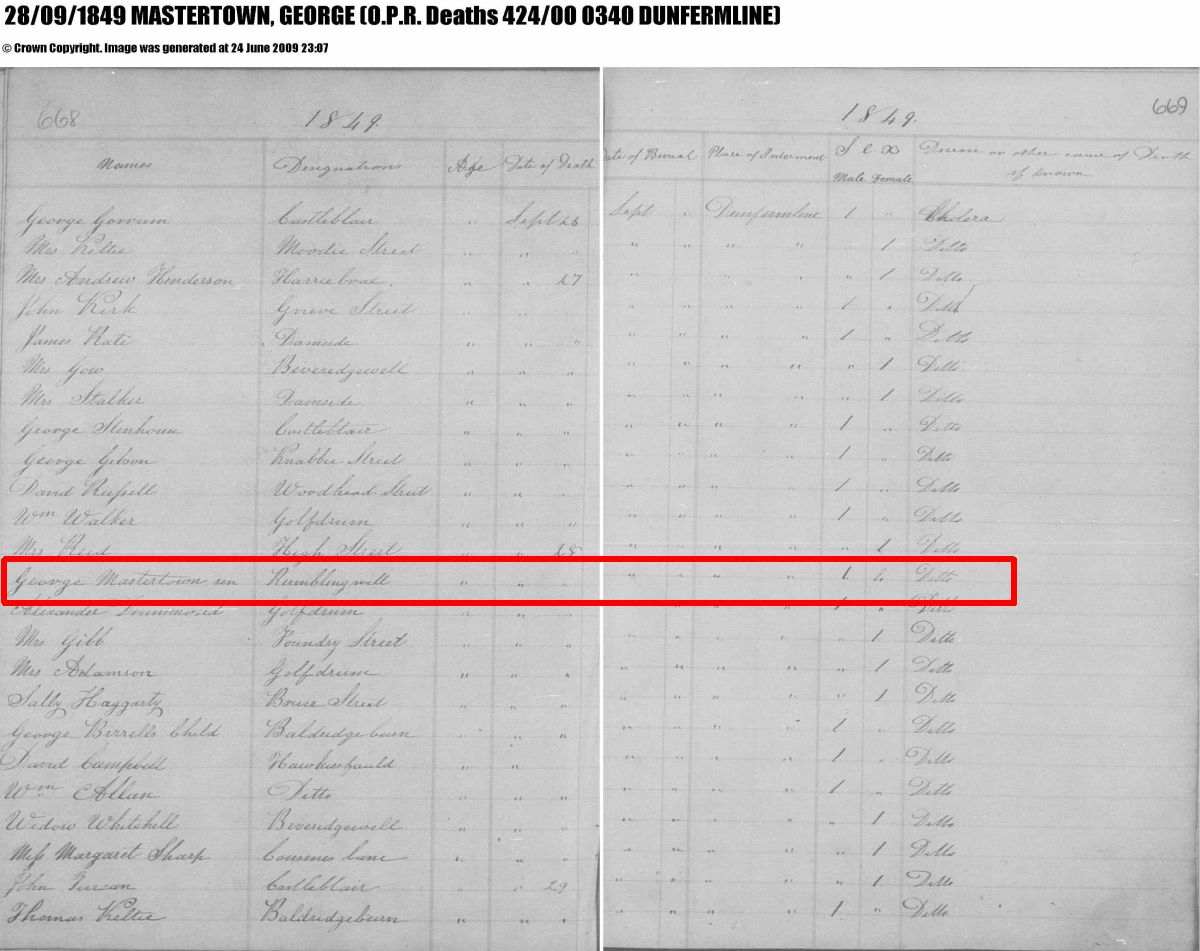 28/09/1849 MASTERTOWN, GEORGE (O.P.R. Deaths 424/00 0340 DUNFERMLINE)
© Crown Copyright. Image was generated at 24 June 2009 23:07
668 1849. 1849. 669
Names Designations Age Date of Death Date of Burial Place of Interment Sex Disease or other cause of Death
Male Female if known
George Gorrum Castleblair " Sept 26 Sept " Dunfermline 1 " Cholera
Mrs Keltie Moodie Street " " " " " " " " 1 Ditto
Mrs Andrew Henderson Harriebrae " " 27 " " " " " 1 Ditto
John Kirk Grieve Street " " " " " " 1 " Ditto
James Kate Damside " " " " " " " 1 " Ditto
Mrs Gow Beveridgewell " " " " " " " " 1 Ditto
Mrs Stalker Damside " " " " " " " " 1 Ditto
George Stenhouse Castleblair " " " " " " " 1 " Ditto
George Gibson Knabbie Street " " " " " " " 1 " Ditto
David Russell Woodhead Street " " " " " " " 1 " Ditto
Wm Walker Golfdrum " " " " " " " 1 " Ditto
Mrs Reid High Street " " 28 " " " " " 1 Ditto
George Mastertown sen Rumblingwell " " " " " " " 1 " Ditto
Alexander Drummond Golfdrum " " " " " " " 1 " Ditto
Mrs Gibb Foundry Street " " " " " " " " 1 Ditto
Mrs Adamson Golfdrum " " " " " " " " 1 Ditto
Sally Haggarty Bruce Street " " " " " " " " 1 Ditto
George Birrells Child Baldridgeburn " " " " " " " 1 " Ditto
David Campbell " " " " " " 1 " Ditto
Wm Allan Ditto " " " " " " " 1 " Ditto
Widow Whitehill Beveridgewell " " " " " " " " 1 Ditto
Miss Margaret Sharp lane " " " " " " " " 1 Ditto
John Castleblair " " 29 " " " " 1 Ditto
Thomas Keltie Baldridgeburn " " " " " " " 1 " Ditto